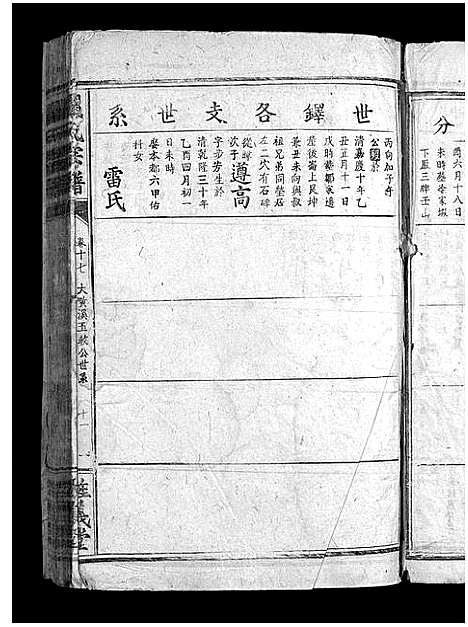 分
酉六月十八日
未時葬徐家塅
下屋三牌壬山
世鐸各支世系
丙向加子午
公歿於
清嘉慶十年乙
丑五月十一日
戌時葬鄒家邊
屋後崙上艮坤
兼丑未向與叔
祖兄弟同塋居
左二穴有石碑
從
次子遵高
字步芳生於
清乾隆三十年
乙酉四月初一
日未時
娶本都六甲佑
杜女
雷氏
氏宗譜
卷十七 大黃溪五欽公世系
十一
義堂